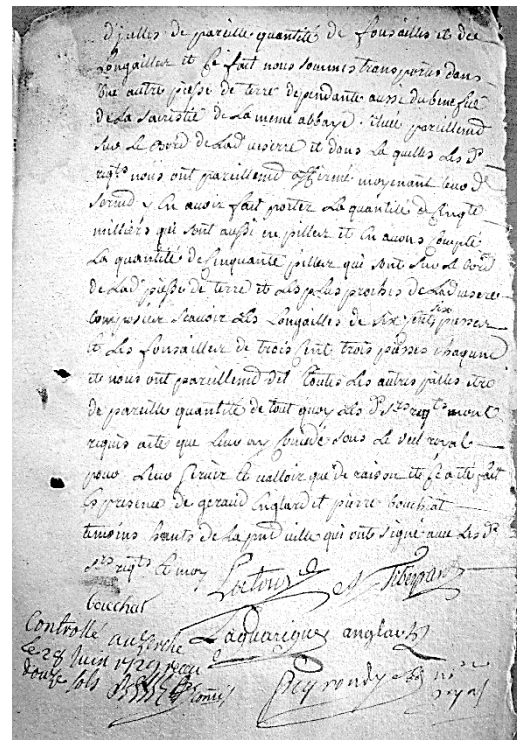 d'jcelles de pareille quantité de fonsailles et de
Longailles et Ce fait nous sommes transportés dans
une autre piesse de terre dependante aussi du benefice
de La Sacristie de La meme abbaye. situee pareillemd
sur Le Bord de Lad viserre et dans La quelles Les ds
reqts nous ont pareillemd affirmé moyenant leurs d
sermd y En avoir fait porter La quantité de Vingt
milliers qui sont aussi en pilles et En avons compté
La quantité de Cinquante pilles qui sont sur Le bord
de Lad piesse de terre et Les plus proches de Lad viserre
Composées scavoir Les Longailles de six cents six pieces
et Les fonsailles de trois Cent trois pieces chaqune
et nous ont pareillemd del toutes Les autres pilles etre
de pareille quantité de tout quoy Les ds srs reqts mont
requis acte que Leur ay Concedé sous Le scel royal
pour Leur servir et valloir que de raison et fait
En presence de geraud Englard et pierre bouchat
temoins habts de La pnt ville qui ont signé avec Les ds
srs reqts et moy
bouchat
Laquarigue anglard
Controllé a userche
Le 28 Juin 1729 reçu
douze sols
Peyrondy nre
royal